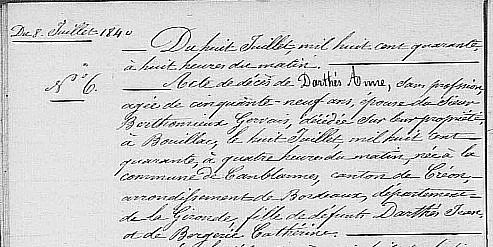 Du 8. Juillet 1840
N.° 6.
Du huit Juillet, mil huit cent quarante,
à huit heures du matin.
Acte de décès de Darthés Anne, sans profession,
agée de cinquante-neuf ans, épouse du Sieur
Berthomieux Gervais, décédée sur leur propriété,
à Bouillac, le huit Juillet, mil huit cent
quarante, à quatre heures du matin, née à la
commune de Camblannes, canton de Créon,
arrondissement de Bordeaux, département
de la Gironde, fille de défunts Darthés Jean,
et de Bergerie Cathérine.